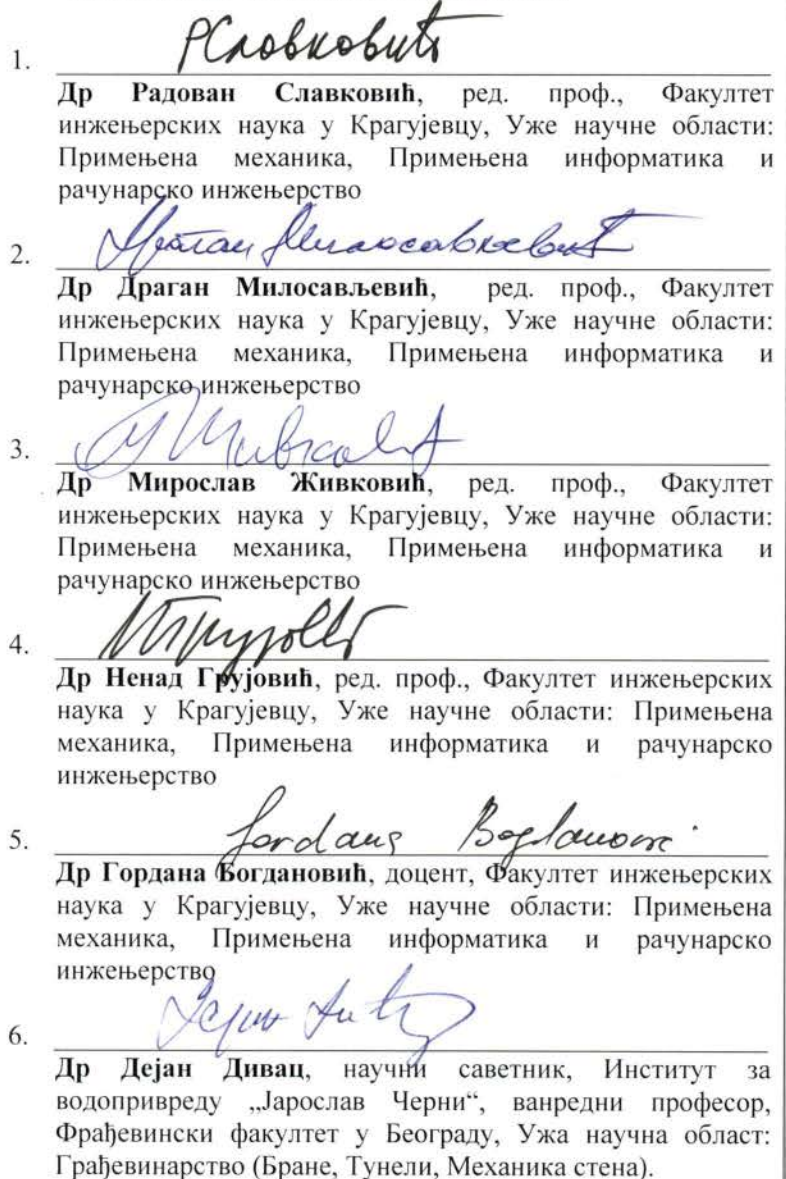 РСлавковић
1.
Др Радован Славковић, ред. проф., Факултет
инжењерских наука у Крагујевцу, Уже научне области:
Примењена механика, Примењена информатика и
рачунарско инжењерство
Драган Милосављевић
2.
Др Драган Милосављевић, ред. проф., Факултет
инжењерских наука у Крагујевцу, Уже научне области:
Примењена механика, Примењена информатика и
рачунарско инжењерство
3.
Др Мирослав Живковић, ред. проф., Факултет
инжењерских наука у Крагујевцу, Уже научне области:
Примењена механика, Примењена информатика и
рачунарско инжењерство
4.
Др Ненад Грујовић, ред. проф., Факултет инжењерских
наука у Крагујевцу, Уже научне области: Примењена
механика, Примењена информатика и рачунарско
инжењерство
Gordana Bogdanović
5.
Др Гордана Богдановић, доцент, Факултет инжењерских
наука у Крагујевцу, Уже научне области: Примењена
механика, Примењена информатика и рачунарско
инжењерство
6.
Др Дејан Дивац, научни саветник, Институт за
водопривреду „Јарослав Черни“, ванредни професор,
Фрађевински факултет у Београду, Ужа научна област:
Грађевинарство (Бране, Тунели, Механика стена).